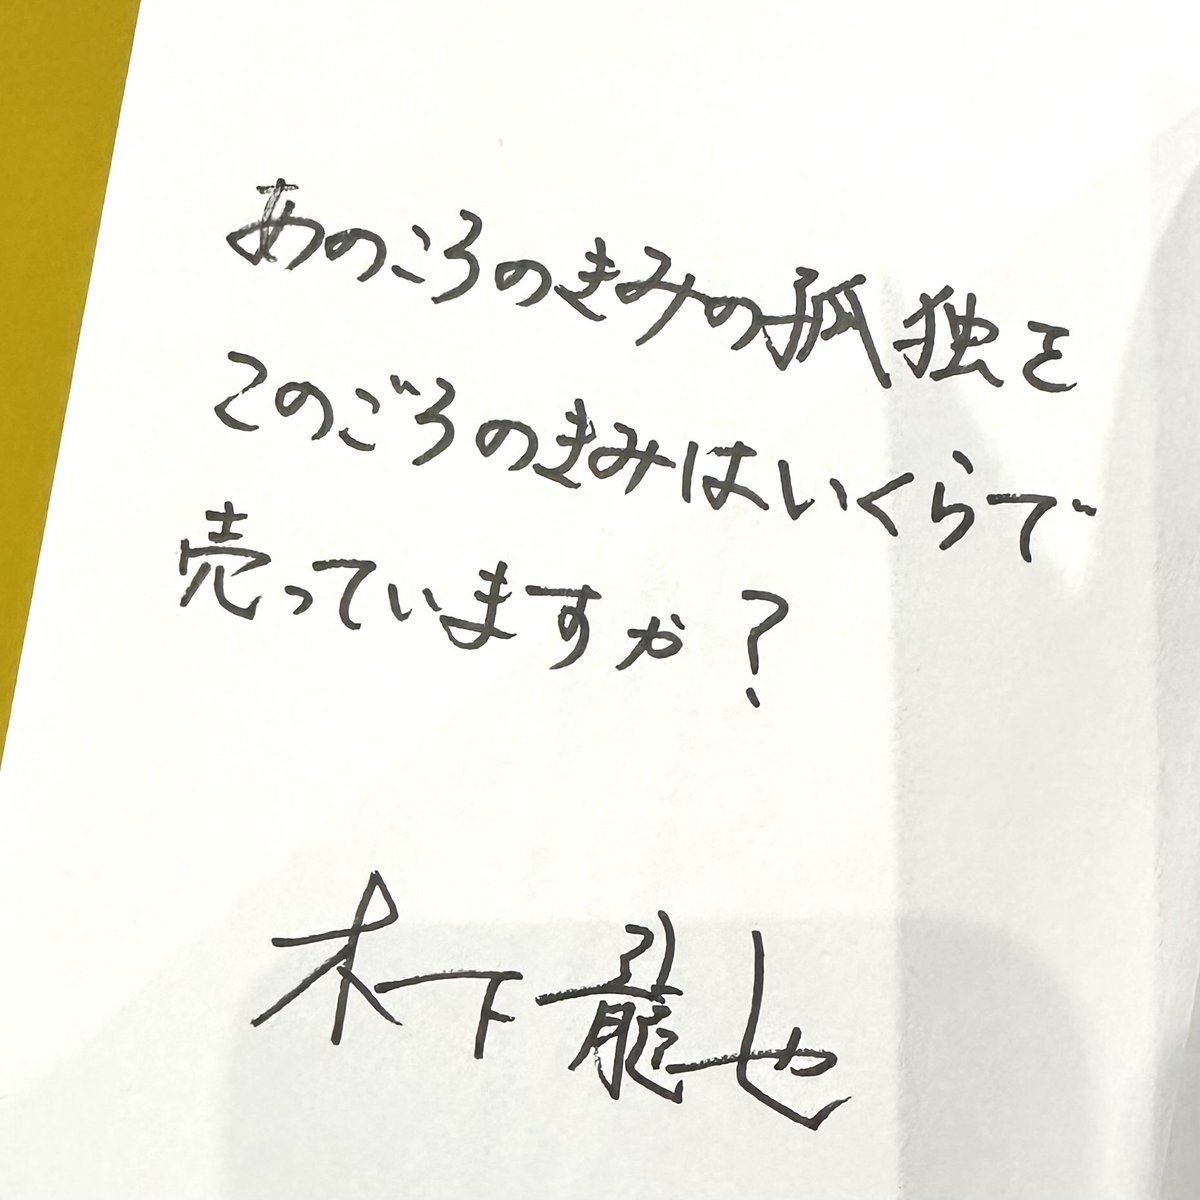 あのころのきみの孤独を
このごろのきみはいくらで
売っていますか?
木下龍也